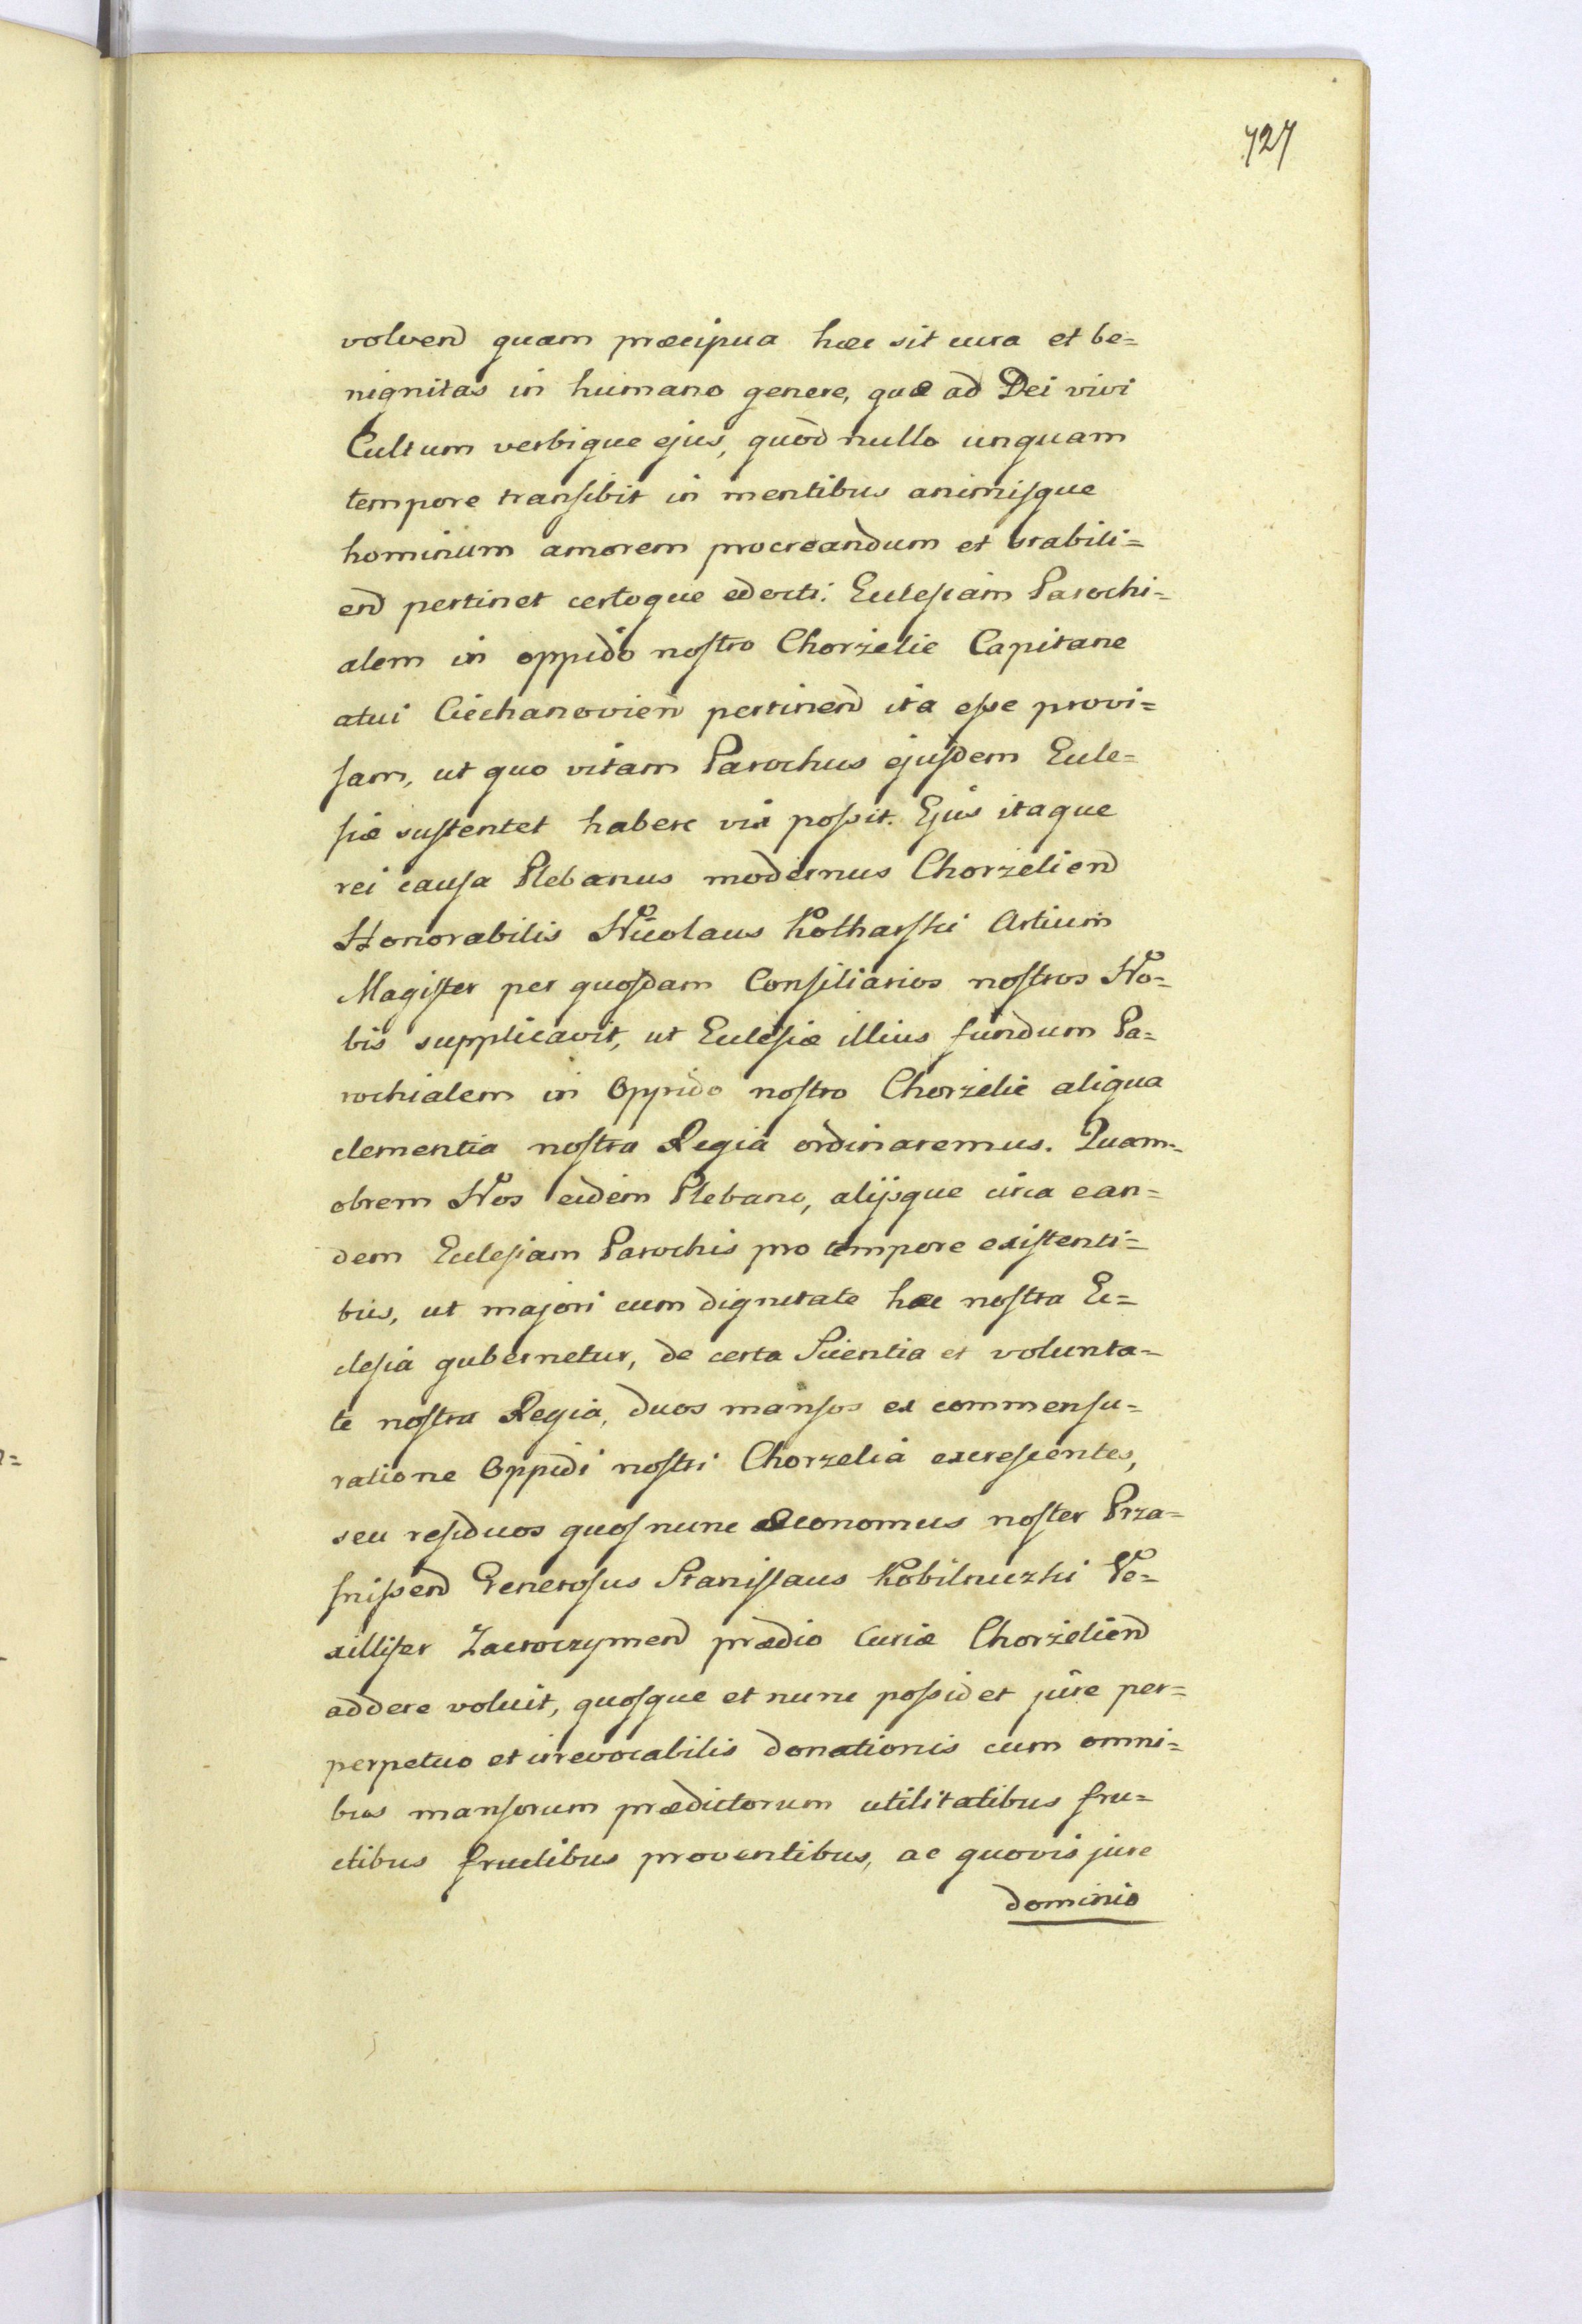 727
volvend quam præcipua hæc sit cura et be=
nignitas in humano genere, quæ ad Dei vivi
Cultum verbique ejus, quòd nullo unquam
tempore transibit in mentibus animisque
hominum amorem procreandum et stabili=
end pertinet certoque edocti: Eclesiam Parochi=
alem in oppido nostro Chorzelie Capitane
atui Ciechanovien pertinend ita esse provi=
sam, ut quo vitam Parochus ejusdem Ecle=
siæ sustentet habere vix possit. Ejus itaque
rei causa Plebanus modernus Chorzeliend
Honorabilis Nicolaus Kotharski Artium
Magister per quosdam Consiliarios nostros No=
bis supplicavit, ut Eclesiæ illius fundum Pa=
rochialem in Oppido nostro Chorzelie aliqua
clementia nostra Regia ordinaremus. Quam=
obrem Nos eidem Plebano, alijsque circa ean=
dem Eclesiam Parochis pro tempore existenti=
bus, ut majori cum dignitate hæc nostra Ec=
clesia gubernetur, de certa Scientia et volunta=
te nostra Regia, duos mansos ex commensu=
ratione Oppidi nostri Chorzelia excrescentes,
seu residuos quos nunc Œconomus noster Prza=
snissend Generosus Stanislaus Kobilniczki Ve=
xillifer Zacroczymend prædio Curiæ Chorzeliend
addere voluit, quosque et nunc possidet jure per=
perpetuo et irrevocabilis donationis cum omni=
bus mansorum prædictorum utilitatibus fru=
ctibus fructibus proventibus, ac quovis jure
dominio